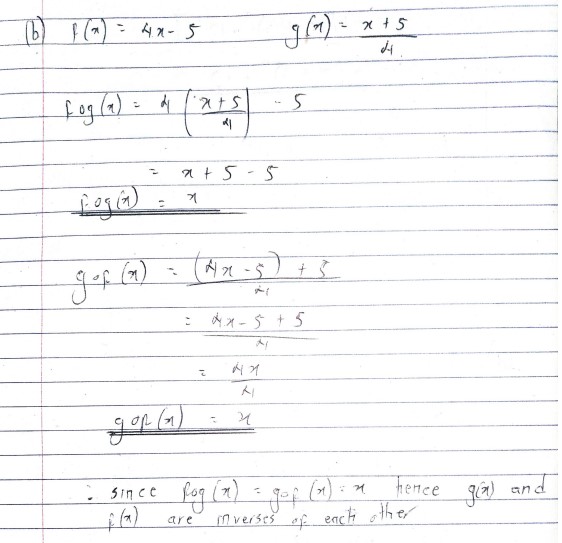 (b) f(x) = 4x - 5 g(x) = x + 5 / 4
fog(x) = 4 (x + 5 / 4) - 5
= x + 5 - 5
fog(x) = x
gof(x) = (4x - 5) + 5 / 4
= 4x - 5 + 5 / 4
= 4x / 4
gof(x) = x
∴ since fog(x) = gof(x) = x hence g(x) and
f(x) are inverses of each other